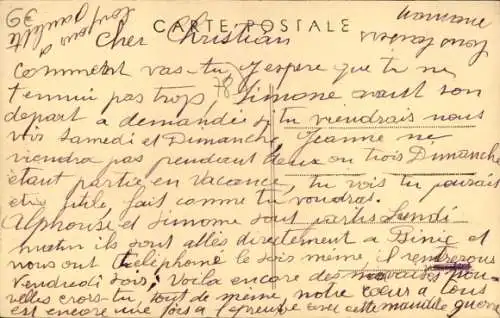 CARTE POSTALE
Cher Christian
Comment vas-tu, J'espère que tu ne
t'ennui pas trop, Simone avant son
depart a demandée si tu viendrais nous
voir Samedi et Dimanche, Jeanne ne
viendra pas pendant deux ou trois Dimanche
étant partie en Vacance, tu vois tu pourais
etre utile, fait comme tu voudras.
Alphonse et Simone sont partis Lundi
matin ils sont allés directement a Binic et
nous ont téléphoné le soir meme, il rentrerons
Vendredi soir, Voila encore des mauvaises nou-
velles crois-tu, tout de meme notre cœur a tous
est encore une fois a l'épreuve avec cette maudite guerre